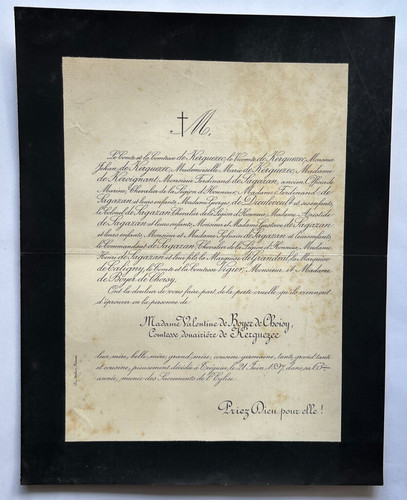 M.
Le Comte et la Comtesse de Kerguezec, le Vicomte de Kerguezec, Monsieur
Jehan de Kerguezec, Mademoiselle Marie de Kerguezec, Madame
de Kervéghant, Monsieur Ferdinand de Sagazan, ancien Officier de
Marine, Chevalier de la Légion d'Honneur, Madame Ferdinand de
Sagazan et leurs enfants, Madame de Dieuleveult et ses enfants,
le Colonel de Sagazan, Chevalier de la Légion d'Honneur, Madame Aristide
de Sagazan et leurs enfants, Monsieur et Madame Gustave de Sagazan
et leurs enfants, Monsieur et Madame de Sagazan et leurs enfants,
le Commandant de Sagazan, Chevalier de la Légion d'Honneur, Madame
Henri de Sagazan et leur fils, la Marquise de Grandval, la Marquise
de Caligny, le Comte et la Comtesse Vigier, Monsieur et Madame
de Boyer de Choisy,
Ont la douleur de vous faire part de la perte cruelle qu'ils viennent
d'éprouver en la personne de
Madame Valentine de Boyer de Choisy,
Comtesse douairière de Kerguezec
leur mère, belle-mère, grand'mère, cousine-germaine, tante, grand'tante
et cousine, pieusement décédée à Tréguier, le 21 Juin 1897, dans sa
année, munie des Sacrements de l'Eglise.
Priez Dieu pour elle !